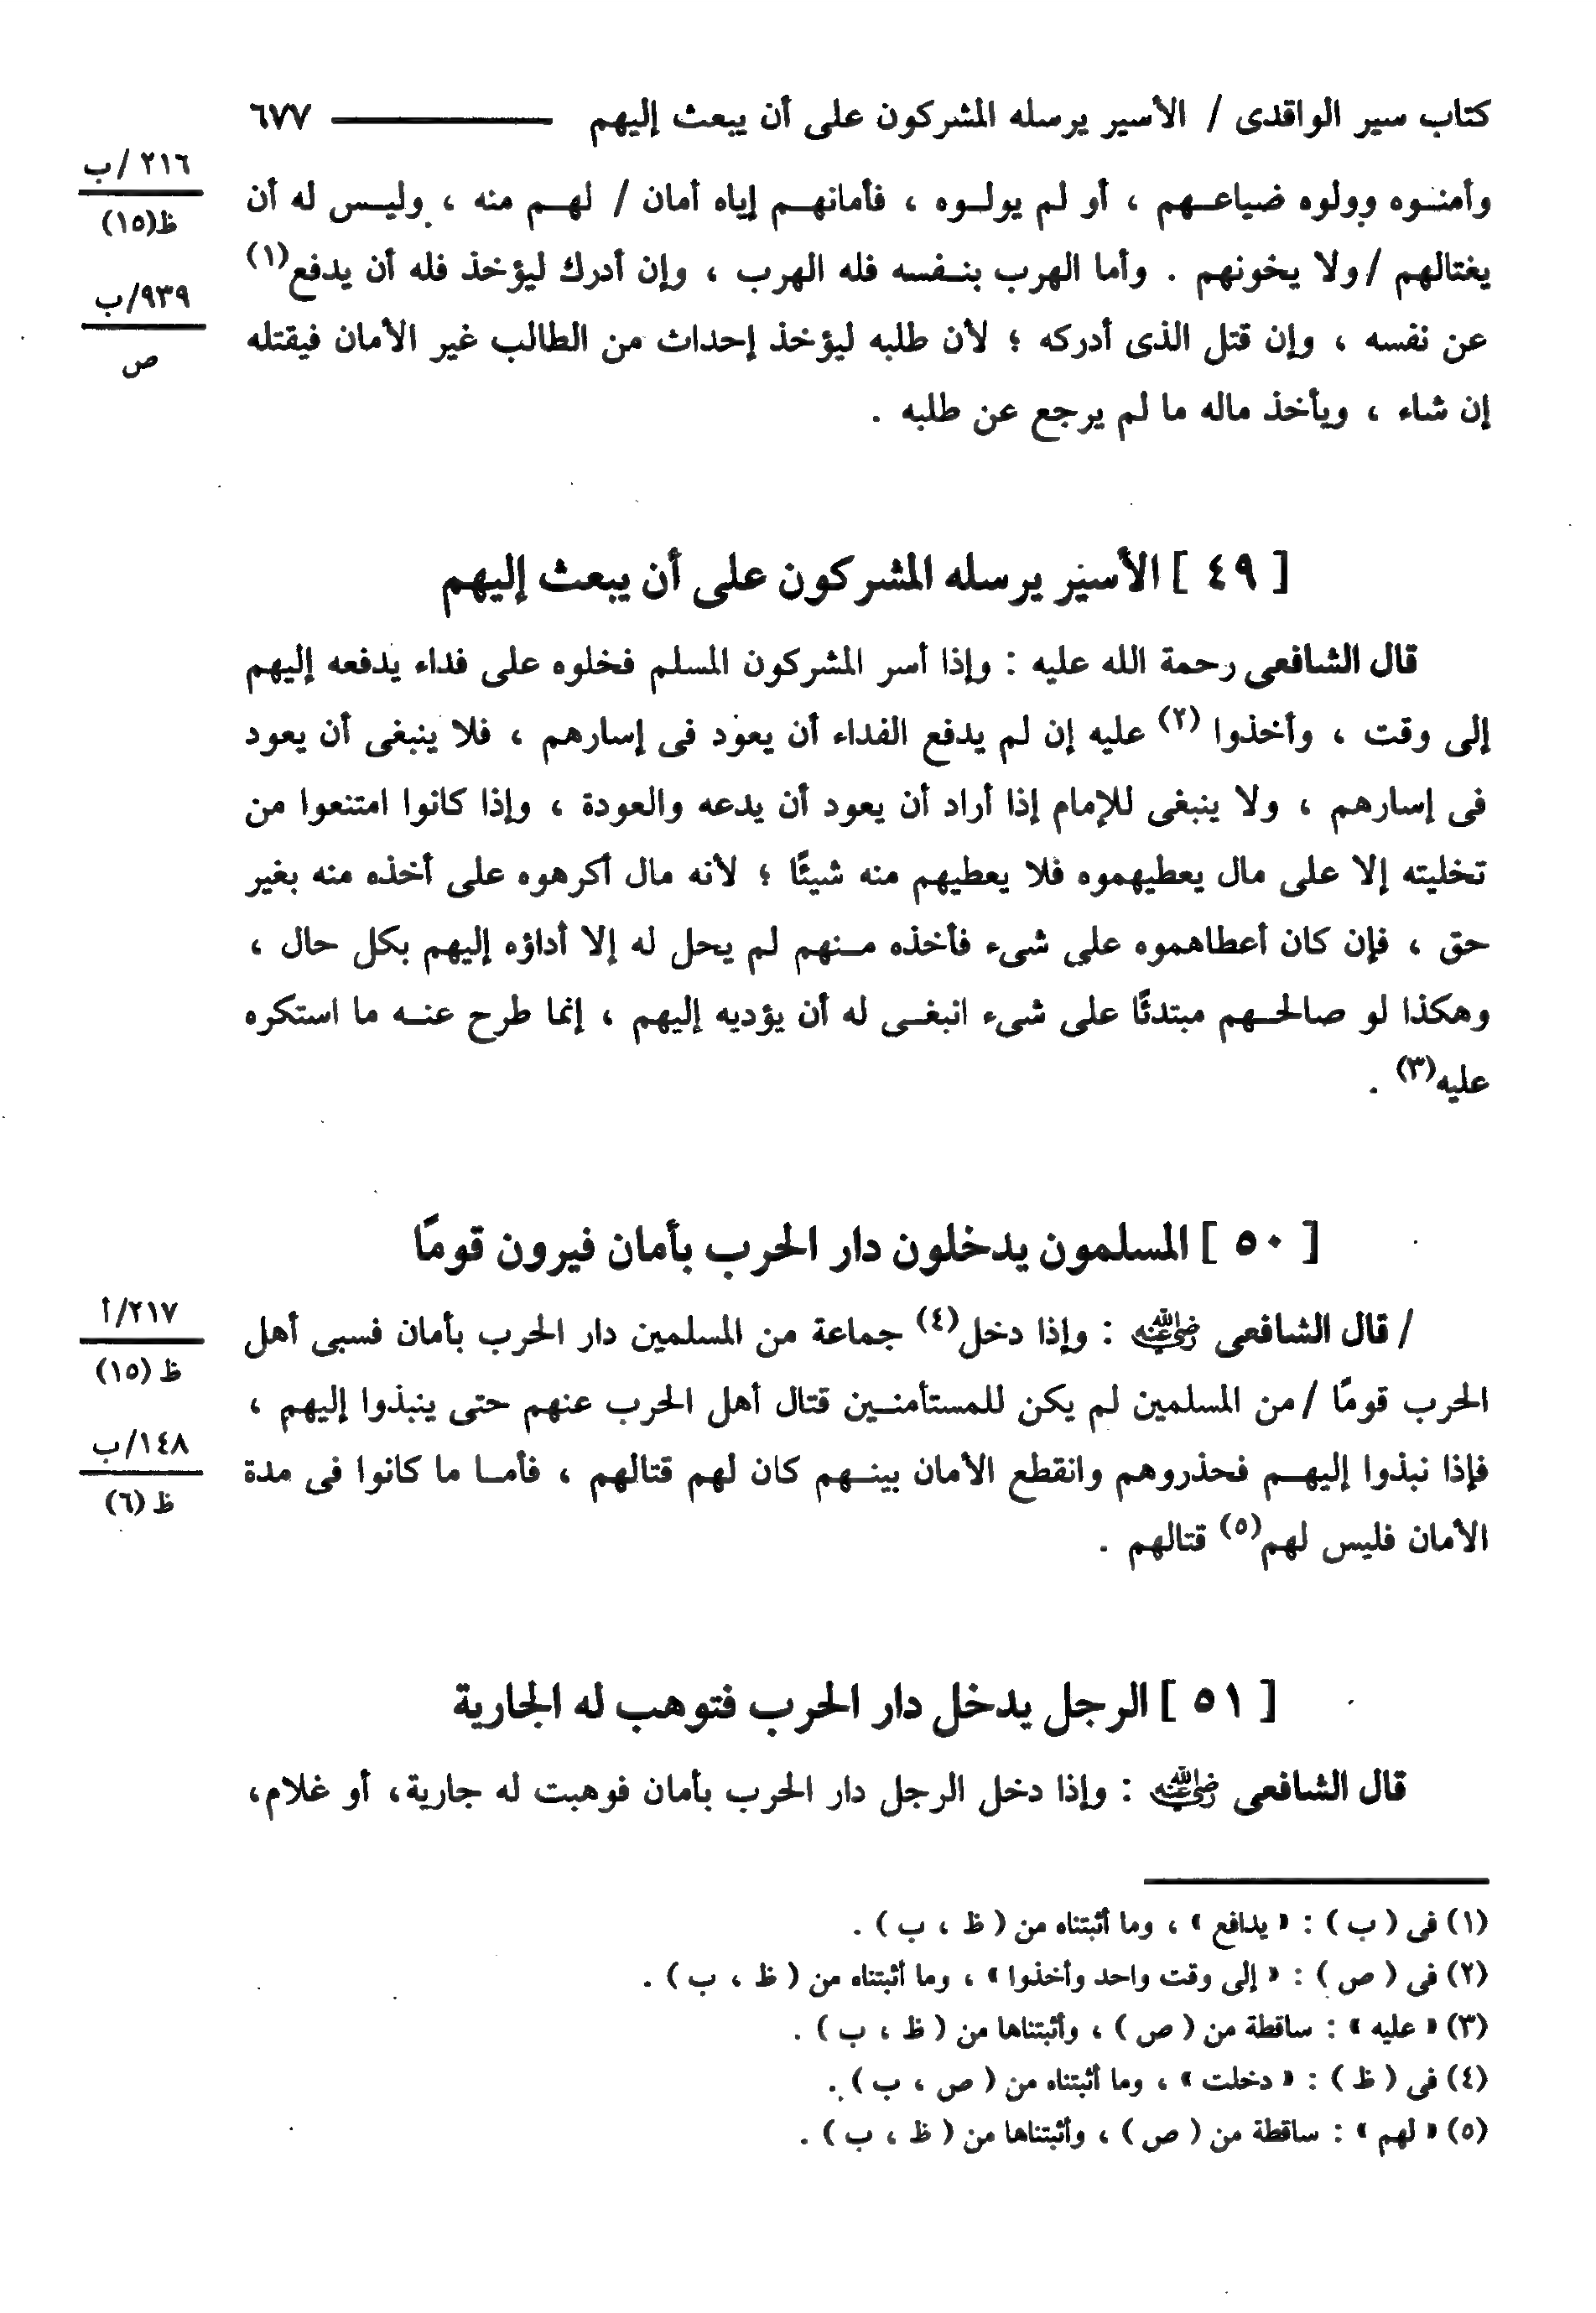 كتاب سير الواقدى / الأسير يرسله المشركون على أن يبعث إليهم ــــــــ ٦٧٧
٢١٦ /ب
ظ(١٥)
٩٣٩/ب
ص
وأمنـوه وولوه ضياعـهم ، أو لم يولـوه ، فأمانهـم إياه أمان / لهـم منه ، وليـس له أن
يغتالهم /ولا يخونهم . وأما الهرب بنـفسه فله الهرب ، وإن أدرك ليؤخذ فله أن يدفع(١)
عن نفسه ، وإن قتل الذى أدركه ؛ لأن طلبه ليؤخذ إحداث من الطالب غير الأمان فيقتله
إن شاء ، ويأخذ ماله ما لم يرجع عن طلبه .
[ ٤٩ ] الأسير يرسله المشركون على أن يبعث إليهم
قال الشافعى رحمة الله عليه : وإذا أسر المشركون المسلم فخلوه على فداء يدفعه إليهم
إلى وقت ، وأخذوا (٢) عليه إن لم يدفع الفداء أن يعود فى إسارهم ، فلا ينبغى أن يعود
فى إسارهم ، ولا ينبغى للإمام إذا أراد أن يعود أن يدعه والعودة ، وإذا كانوا امتنعوا من
تخليته إلا على مال يعطيهموه فلا يعطيهم منه شيئًا ؛ لأنه مال أكرهوه على أخذه منه بغير
حق ، فإن كان أعطاهموه على شىء فأخذه مـنهم لم يحل له إلا أداؤه إليهم بكل حال ،
وهكذا لو صالحـهم مبتدئًا على شىء انبغـى له أن يؤديه إليهم ، إنما طرح عنـه ما استكره
عليه(٣) .
[ ٥٠ ] المسلمون يدخلون دار الحرب بأمان فيرون قومًا
٢١٧/أ
ظ (١٥)
١٤٨/ب
ظ (٦)
/ قال الشافعى رضي الله عنه : وإذا دخل(٤) جماعة من المسلمين دار الحرب بأمان فسبى أهل
الحرب قومًا /من المسلمين لم يكن للمستأمنـين قتال أهل الحرب عنهم حتى ينبذوا إليهم ،
فإذا نبذوا إليهـم فحذروهم وانقطع الأمان بينـهم كان لهم قتالهم ، فأمـا ما كانوا فى مدة
الأمان فليس لهم(٥) قتالهم .
[ ٥١ ] الرجل يدخل دار الحرب فتوهب له الجارية
قال الشافعى رضي الله عنه : وإذا دخل الرجل دار الحرب بأمان فوهبت له جارية، أو غلام،
(١) فى ( ب ) : « يدافع » ، وما أثبتناه من ( ظ ، ب ) .
(٢) فى ( ص ) : « إلى وقت واحد وأخذوا » ، وما أثبتناه من ( ظ ، ب ) .
(٣) « عليه » : ساقطة من ( ص ) ، وأثبتناها من ( ظ ، ب ) .
(٤) فى ( ظ ) : « دخلت » ، وما أثبتناه من ( ص ، ب ) .
(٥) « لهم » : ساقطة من ( ص ) ، وأثبتناها من ( ظ ، ب ) .